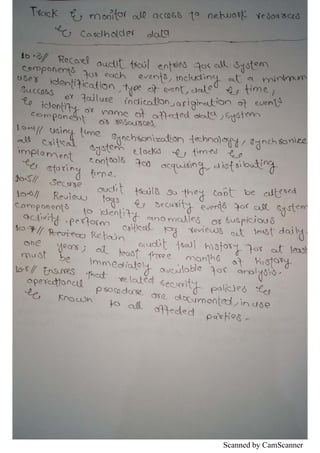 Track & monitor all access to network resources
& Cardholder data
10.3// Record audit trail entries for all system
components for each events, including at a minimum
user identification, type of event, date & time,
success or failure indication, origination of events
& identity or name of affected data, system
component or resources.
10.4// using time synchronization technology, synchronize
all critical system clocks & times &
implement controls for acquiring, distributing
& storing time.
10.5// secure audit trails so they can't be altered
10.6// Review logs & security events for all system
components to identify anomalies or suspicious
activity. perform critical log reviews at least daily.
10.7// Retain audit trail history for at least
one year; at least three months of history
must be immediately available for analysis.
10.8// Ensures that related security policies &
operational procedure are documented, in use
& known to all affected parties.
Scanned by CamScanner